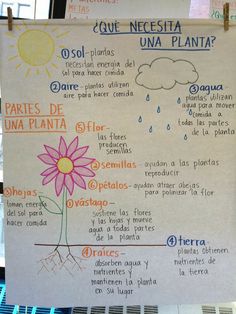 ¿QUÉ NECESITA
UNA PLANTA?
① sol - plantas
necesitan energía del
sol para hacer comida
② aire - plantas utilizan
aire para hacer comida
③ agua
plantas utilizan
agua para mover
comida a
todas las partes
de la planta
PARTES DE
UNA PLANTA
⑤ flor -
las flores
producen
semillas
② semillas - ayudan a las plantas
reproducir
⑥ pétalos - ayudan atraer abejas
para polinizar la flor
③ hojas
toman energía
del sol para
hacer comida
① vástago -
sustiene las flores
y las hojas y mueve
agua a todas partes
de la planta
④ raíces -
absorben agua y
nutrientes y
mantienen la planta
en su lugar
④ tierra -
plantas obtienen
nutrientes de
la tierra